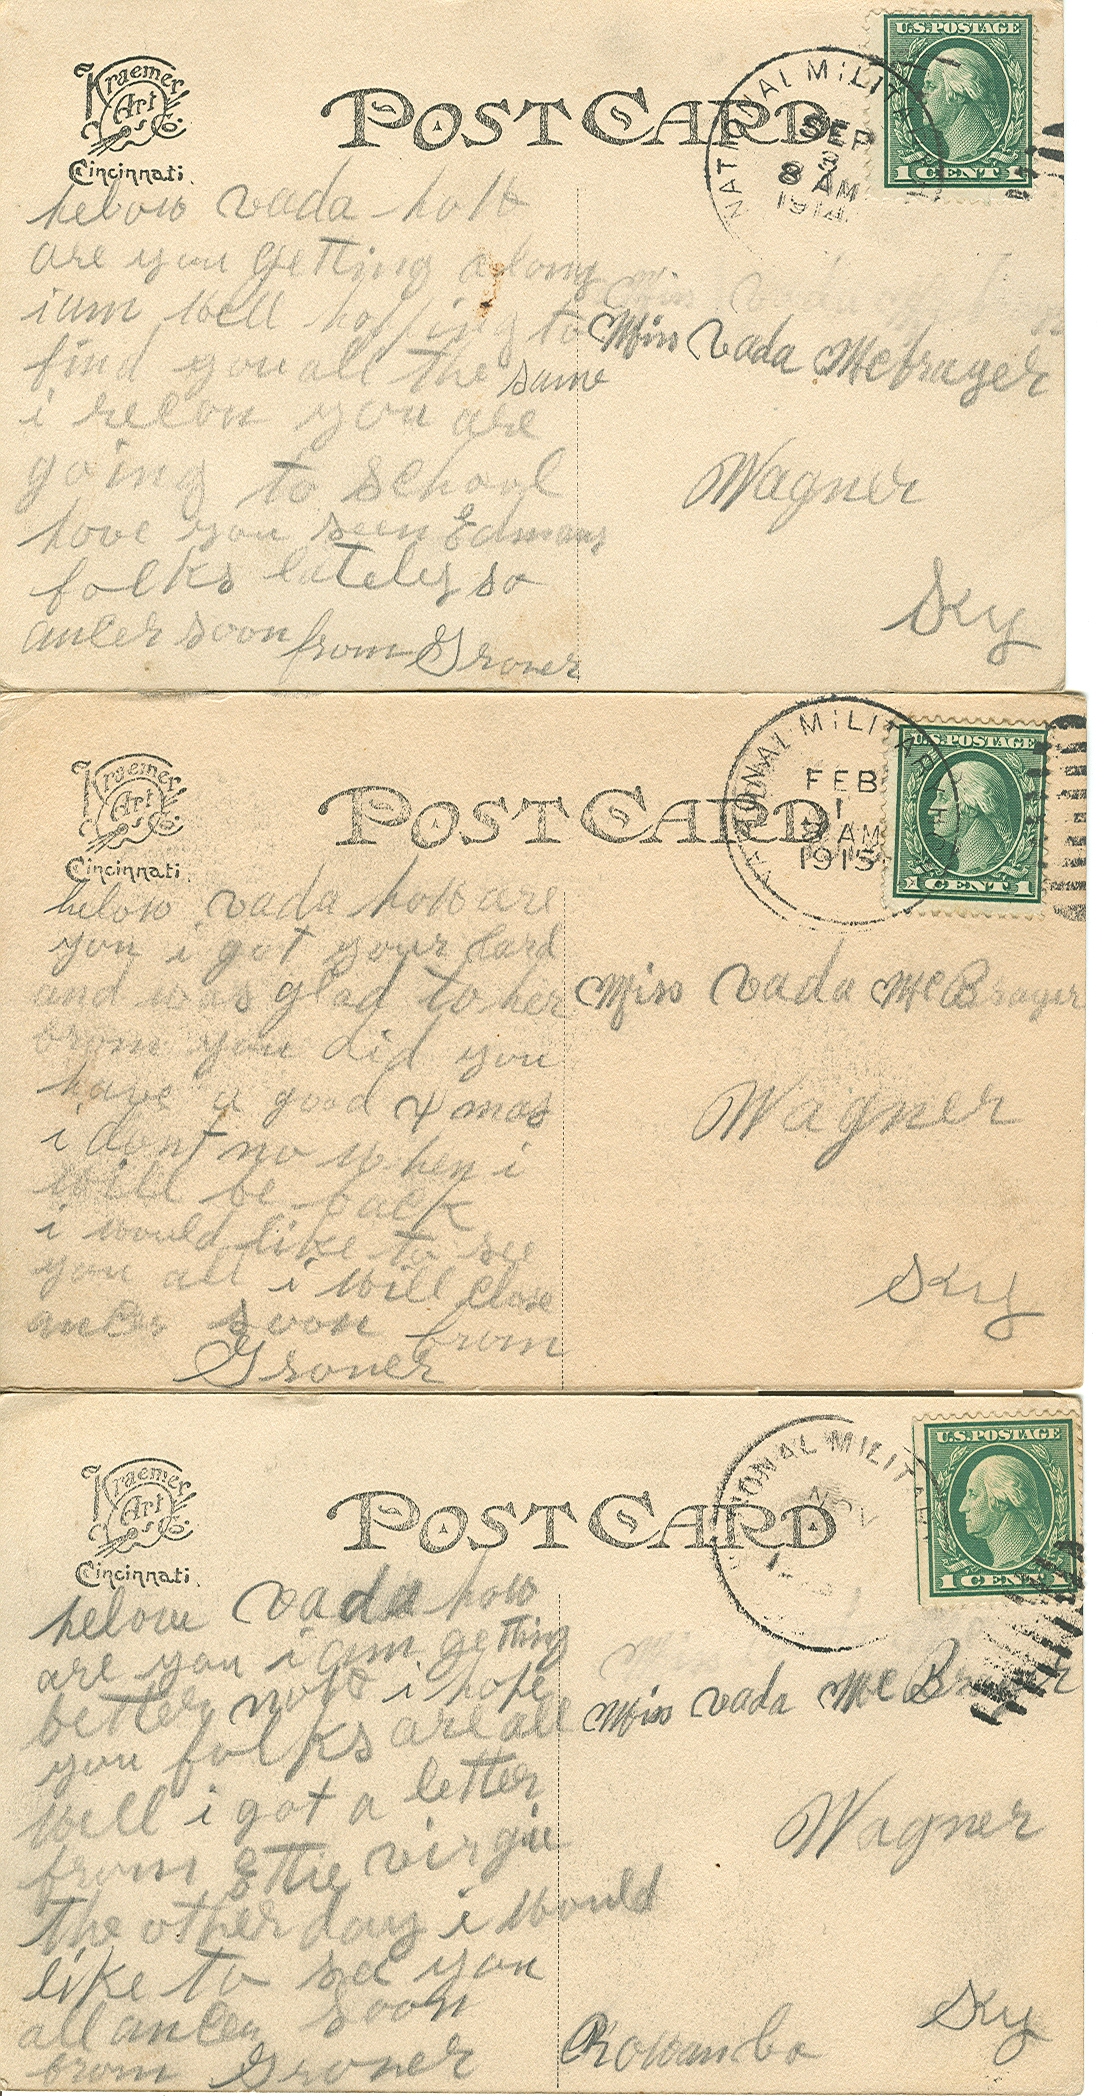 Kraemer
Art
Co.
Cincinnati.
POST CARD
NATIONAL MILITARY
SEP
3
8 AM
1914
U.S.POSTAGE
1 CENT 1
helow vada how
are you getting along
i am well hopping to
find you all the same
i recon you are
going to school
have you seen Edmans
folks lately so
ancer soon from Grover
Miss Vada Mcbrayer
Wagner
Ky
Kraemer
Art
Co.
Cincinnati.
POST CARD
NATIONAL MILITARY
FEB
1
AM
1915
U.S.POSTAGE
1 CENT 1
helow vada how are
you i got your Card
and was glad to her
from you did you
have a good Xmas
i dont no when i
will be back
i would like to see
you all i will close
ancer soon from
Grover
Miss Vada McBrayer
Wagner
Ky
Kraemer
Art
Co.
Cincinnati.
POST CARD
NATIONAL MILITARY
NOV
U.S.POSTAGE
1 CENT 1
helow Vada how
are you i am getting
better now i hope
you folks are all
well i got a letter
from virgie
the other day i would
like to see you
all ancer soon
from Grover
Miss Vada McBrayer
Wagner
Ky
Rowan Co